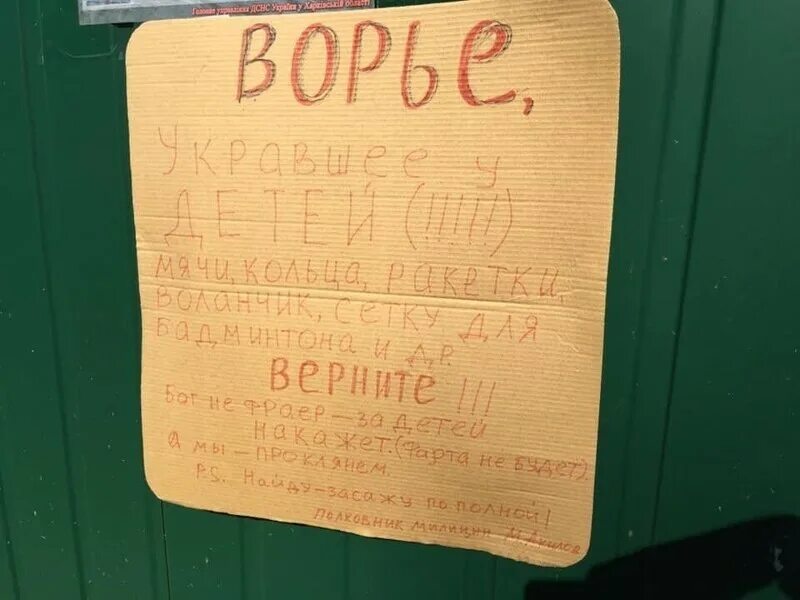 Головне управління ДСНС України у Харківській області
ВОРЬЕ,
УКРАВШЕЕ У
ДЕТЕЙ (!!!!!)
МЯЧИ, КОЛЬЦА, РАКЕТКИ,
ВОЛАНЧИК, СЕТКУ ДЛЯ
БАДМИНТОНА И ДР.
ВЕРНИТЕ!!!
Бог не фраер – за детей
накажет. (Фарта не будет)
А мы – проклянем.
P.S. Найду – засажу по полной!
Полковник милиции